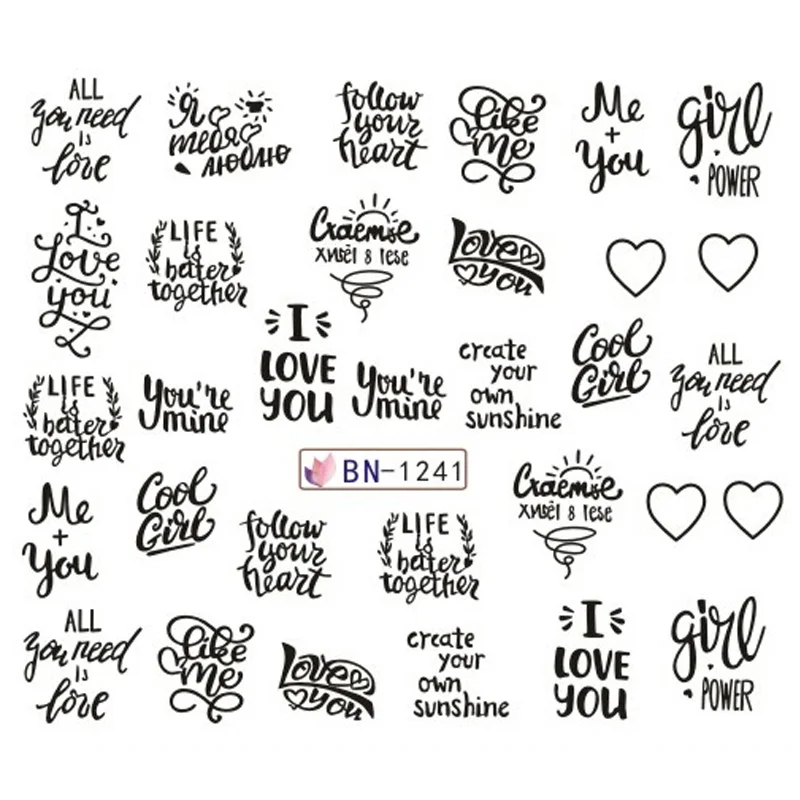 ALL
you need
is
love
Я
тебя
люблю
follow
your
heart
like
me
Me
+
You
girl
POWER
I
Love
you
LIFE
is
beter
together
Love
you
I
LOVE
YOU
LIFE
is
beter
together
You're
mine
You're
mine
create
your
own
sunshine
Cool
Girl
ALL
you need
is
love
BN-1241
Me
+
You
Cool
Girl
follow
your
heart
LIFE
is
beter
together
ALL
you need
is
love
like
me
Love
you
create
your
own
sunshine
I
LOVE
YOU
girl
POWER